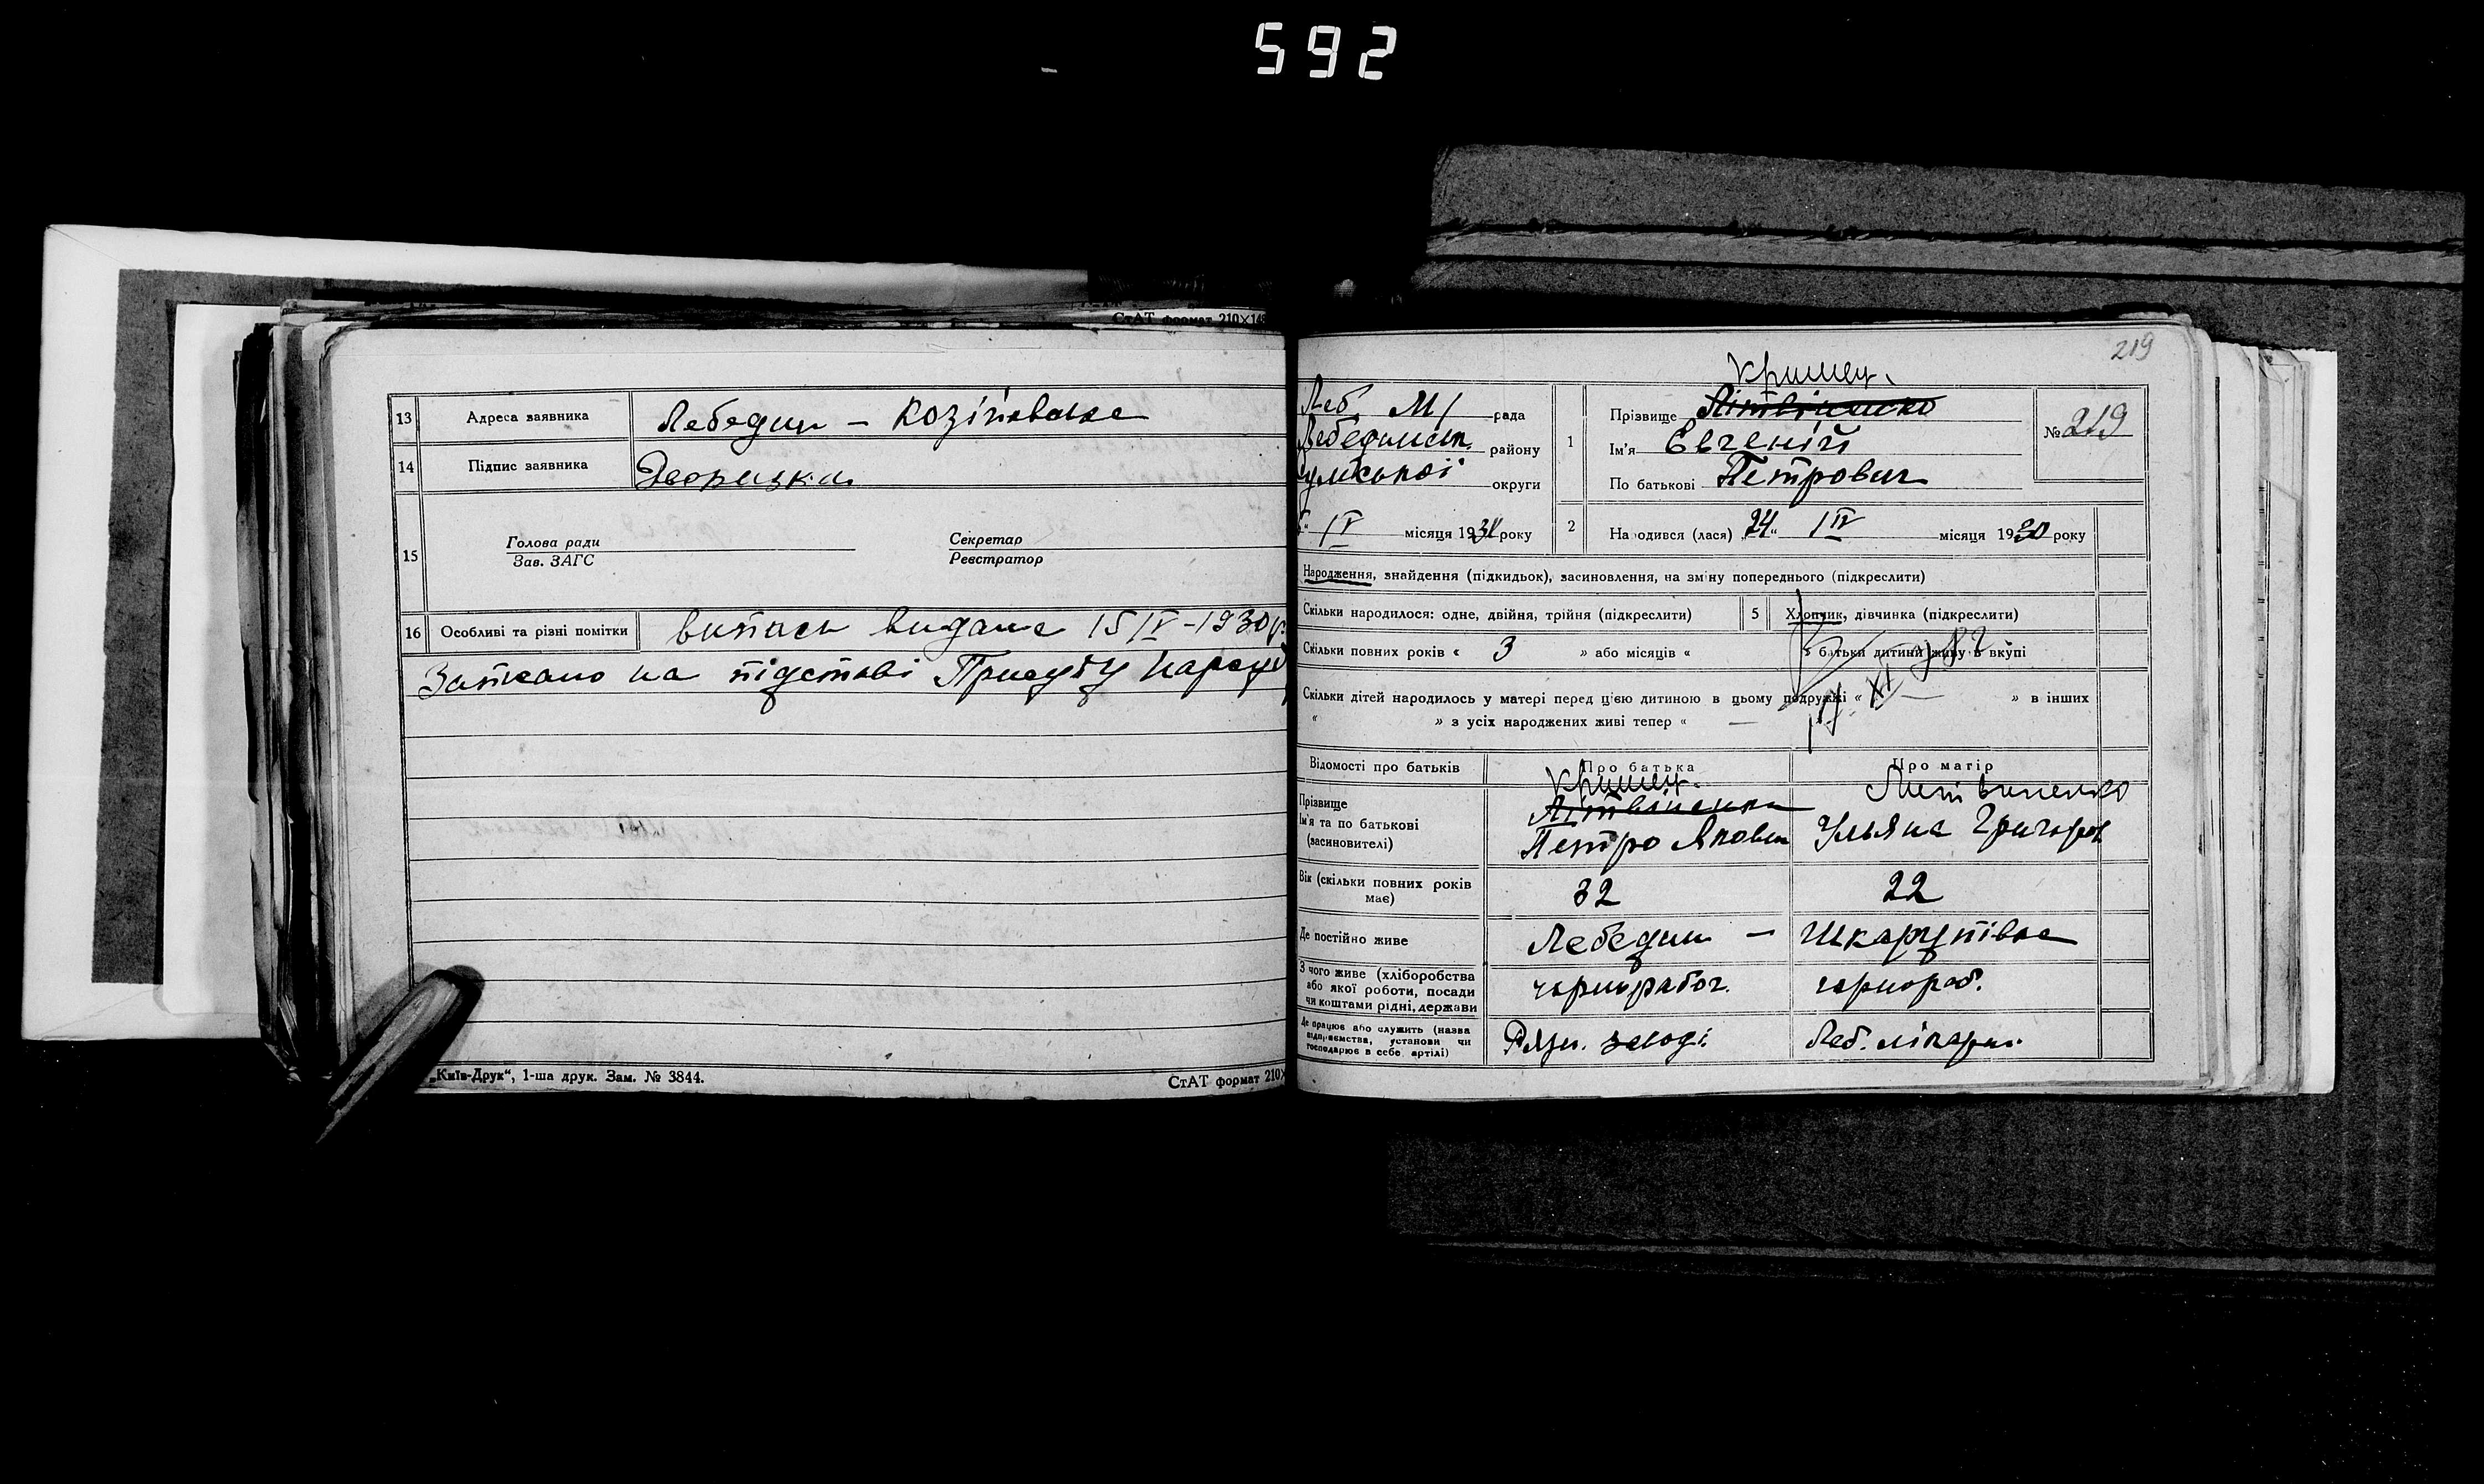 592
СтАТ формат 210×148
13 Адреса заявника Лебедин – Козіївська
14 Підпис заявника Дворецька
15 Голова ради Секретар
Зав. ЗАГС Реєстратор
16 Особливі та різні помітки випись видана 15 IV – 1930 р.
Записано на підставі Присуду Нарсуд
„Київ-Друк“, 1-ша друк. Зам. № 3844.
СтАТ формат 210×
219
Леб. М/ рада
Лебединск. району
Сумської округи
IV місяця 19 року
1 Прізвище Літвіненко
Ім'я Євгеній
По батькові Петрович
№ 219
2 Народився (лася) „24“ IV місяця 1930 року
Народження, знайдення (підкидьок), засиновлення, на зміну попереднього (підкреслити)
Скільки народилося: одне, двійня, трійня (підкреслити) 5 Хлопчик, дівчинка (підкреслити)
Скільки повних років « 3 » або місяців « батьки дитини живуть вкупі
Скільки дітей народилось у матері перед цією дитиною в цьому подружжі « — » в інших
« » з усіх народжених живі тепер « —
Відомості про батьків Про батька Про матір
Прізвище Літвіненко Литвиненко
Ім'я та по батькові Петро Якович Ульяна Григоров
(засиновителі)
Вік (скільки повних років має) 32 22
Де постійно живе Лебедин – Шкарупівка
З чого живе (хліборобства або якої роботи, посади чи коштами рідні, держави чорнорабоч. чорнороб.
Де працює або служить (назва підприємства, установи чи господарює в себе, артілі) заводі Леб. лікарні